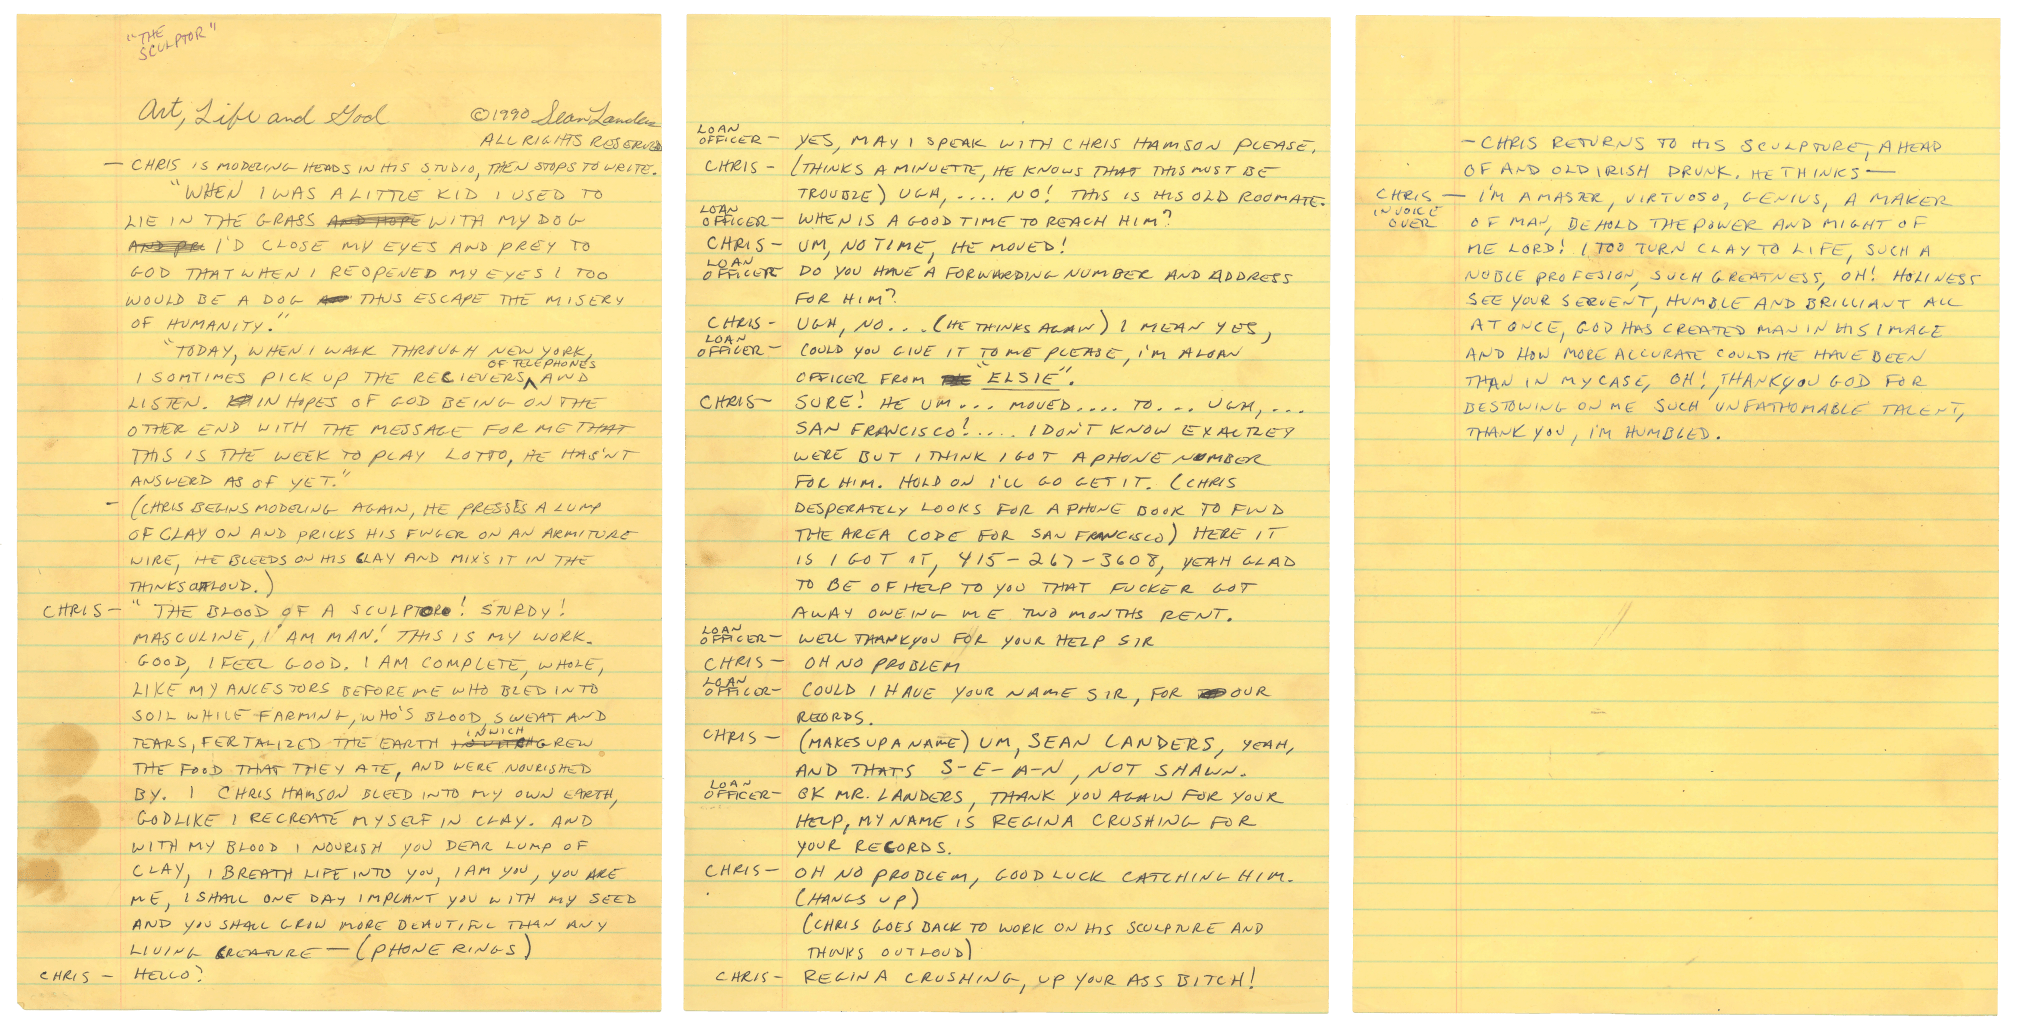 "THE
SCULPTOR"
Art, Life and God ©1990 Sean Landers
ALL RIGHTS RESERVED
— CHRIS IS MODELING HEADS IN HIS STUDIO, THEN STOPS TO WRITE.
"WHEN I WAS A LITTLE KID I USED TO
LIE IN THE GRASS AND HOPE WITH MY DOG
AND PR I'D CLOSE MY EYES AND PREY TO
GOD THAT WHEN I REOPENED MY EYES I TOO
WOULD BE A DOG THUS ESCAPE THE MISERY
OF HUMANITY."
"TODAY, WHEN I WALK THROUGH NEW YORK,
OF TELEPHONES
I SOMTIMES PICK UP THE RECIEVERS ^ AND
LISTEN. IN HOPES OF GOD BEING ON THE
OTHER END WITH THE MESSAGE FOR ME THAT
THIS IS THE WEEK TO PLAY LOTTO, HE HAS'NT
ANSWERD AS OF YET."
— (CHRIS BEGINS MODELING AGAIN, HE PRESSES A LUMP
OF CLAY ON AND PRICKS HIS FINGER ON AN ARMITURE
WIRE, HE BLEEDS ON HIS CLAY AND MIX'S IT IN THE
THINKS OUTLOUD.)
CHRIS — "THE BLOOD OF A SCULPTOR! STURDY!
MASCULINE, I'AM MAN! THIS IS MY WORK.
GOOD, I FEEL GOOD. I AM COMPLETE, WHOLE,
LIKE MY ANCESTORS BEFORE ME WHO BLED INTO
SOIL WHILE FARMING, WHO'S BLOOD, SWEAT AND
IN WICH
TEARS, FERTALIZED THE EARTH GREW
THE FOOD THAT THEY ATE, AND WERE NOURISHED
BY. I CHRIS HAMSON BLEED INTO MY OWN EARTH,
GODLIKE I RECREATE MYSELF IN CLAY. AND
WITH MY BLOOD I NOURISH YOU DEAR LUMP OF
CLAY, I BREATH LIFE INTO YOU, I AM YOU, YOU ARE
ME, I SHALL ONE DAY IMPLANT YOU WITH MY SEED
AND YOU SHALL GROW MORE BEAUTIFUL THAN ANY
LIVING CREATURE — (PHONE RINGS)
CHRIS — HELLO?
LOAN
OFFICER — YES, MAY I SPEAK WITH CHRIS HAMSON PLEASE.
CHRIS — (THINKS A MINUETTE, HE KNOWS THAT THIS MUST BE
TROUBLE) UGH, .... NO! THIS IS HIS OLD ROOMATE.
LOAN
OFFICER — WHEN IS A GOOD TIME TO REACH HIM?
CHRIS — UM, NO TIME, HE MOVED!
LOAN
OFFICER — DO YOU HAVE A FORWARDING NUMBER AND ADDRESS
FOR HIM?
CHRIS — UGH, NO... (HE THINKS AGAIN) I MEAN YES,
LOAN
OFFICER — COULD YOU GIVE IT TO ME PLEASE, I'M A LOAN
OFFICER FROM "ELSIE".
CHRIS — SURE! HE UM... MOVED.... TO... UGH, ...
SAN FRANCISCO!.... I DON'T KNOW EXACTLEY
WERE BUT I THINK I GOT A PHONE NUMBER
FOR HIM. HOLD ON I'LL GO GET IT. (CHRIS
DESPERATELY LOOKS FOR A PHONE BOOK TO FIND
THE AREA CODE FOR SAN FRANCISCO) HERE IT
IS I GOT IT, 415-267-3608, YEAH GLAD
TO BE OF HELP TO YOU THAT FUCKER GOT
AWAY OWEING ME TWO MONTHS RENT.
LOAN
OFFICER — WELL THANKYOU FOR YOUR HELP SIR
CHRIS — OH NO PROBLEM
LOAN
OFFICER — COULD I HAVE YOUR NAME SIR, FOR OUR
RECORDS.
CHRIS — (MAKES UP A NAME) UM, SEAN LANDERS, YEAH,
AND THATS S-E-A-N, NOT SHAWN.
LOAN
OFFICER — OK MR. LANDERS, THANK YOU AGAIN FOR YOUR
HELP, MY NAME IS REGINA CRUSHING FOR
YOUR RECORDS.
CHRIS — OH NO PROBLEM, GOOD LUCK CATCHING HIM.
(HANGS UP)
(CHRIS GOES BACK TO WORK ON HIS SCULPTURE AND
THINKS OUTLOUD)
CHRIS — REGINA CRUSHING, UP YOUR ASS BITCH!
— CHRIS RETURNS TO HIS SCULPTURE, A HEAD
OF AND OLD IRISH DRUNK. HE THINKS —
CHRIS — I'M A MASTER, VIRTUOSO, GENIUS, A MAKER
IN VOICE
OVER
OF MAN, BEHOLD THE POWER AND MIGHT OF
ME LORD! I TOO TURN CLAY TO LIFE, SUCH A
NOBLE PROFESION, SUCH GREATNESS, OH! HOLINESS
SEE YOUR SERVENT, HUMBLE AND BRILLIANT ALL
AT ONCE, GOD HAS CREATED MAN IN HIS IMAGE
AND HOW MORE ACCURATE COULD HE HAVE BEEN
THAN IN MY CASE, OH! THANKYOU GOD FOR
BESTOWING ON ME SUCH UNFATHOMABLE TALENT,
THANK YOU, I'M HUMBLED.